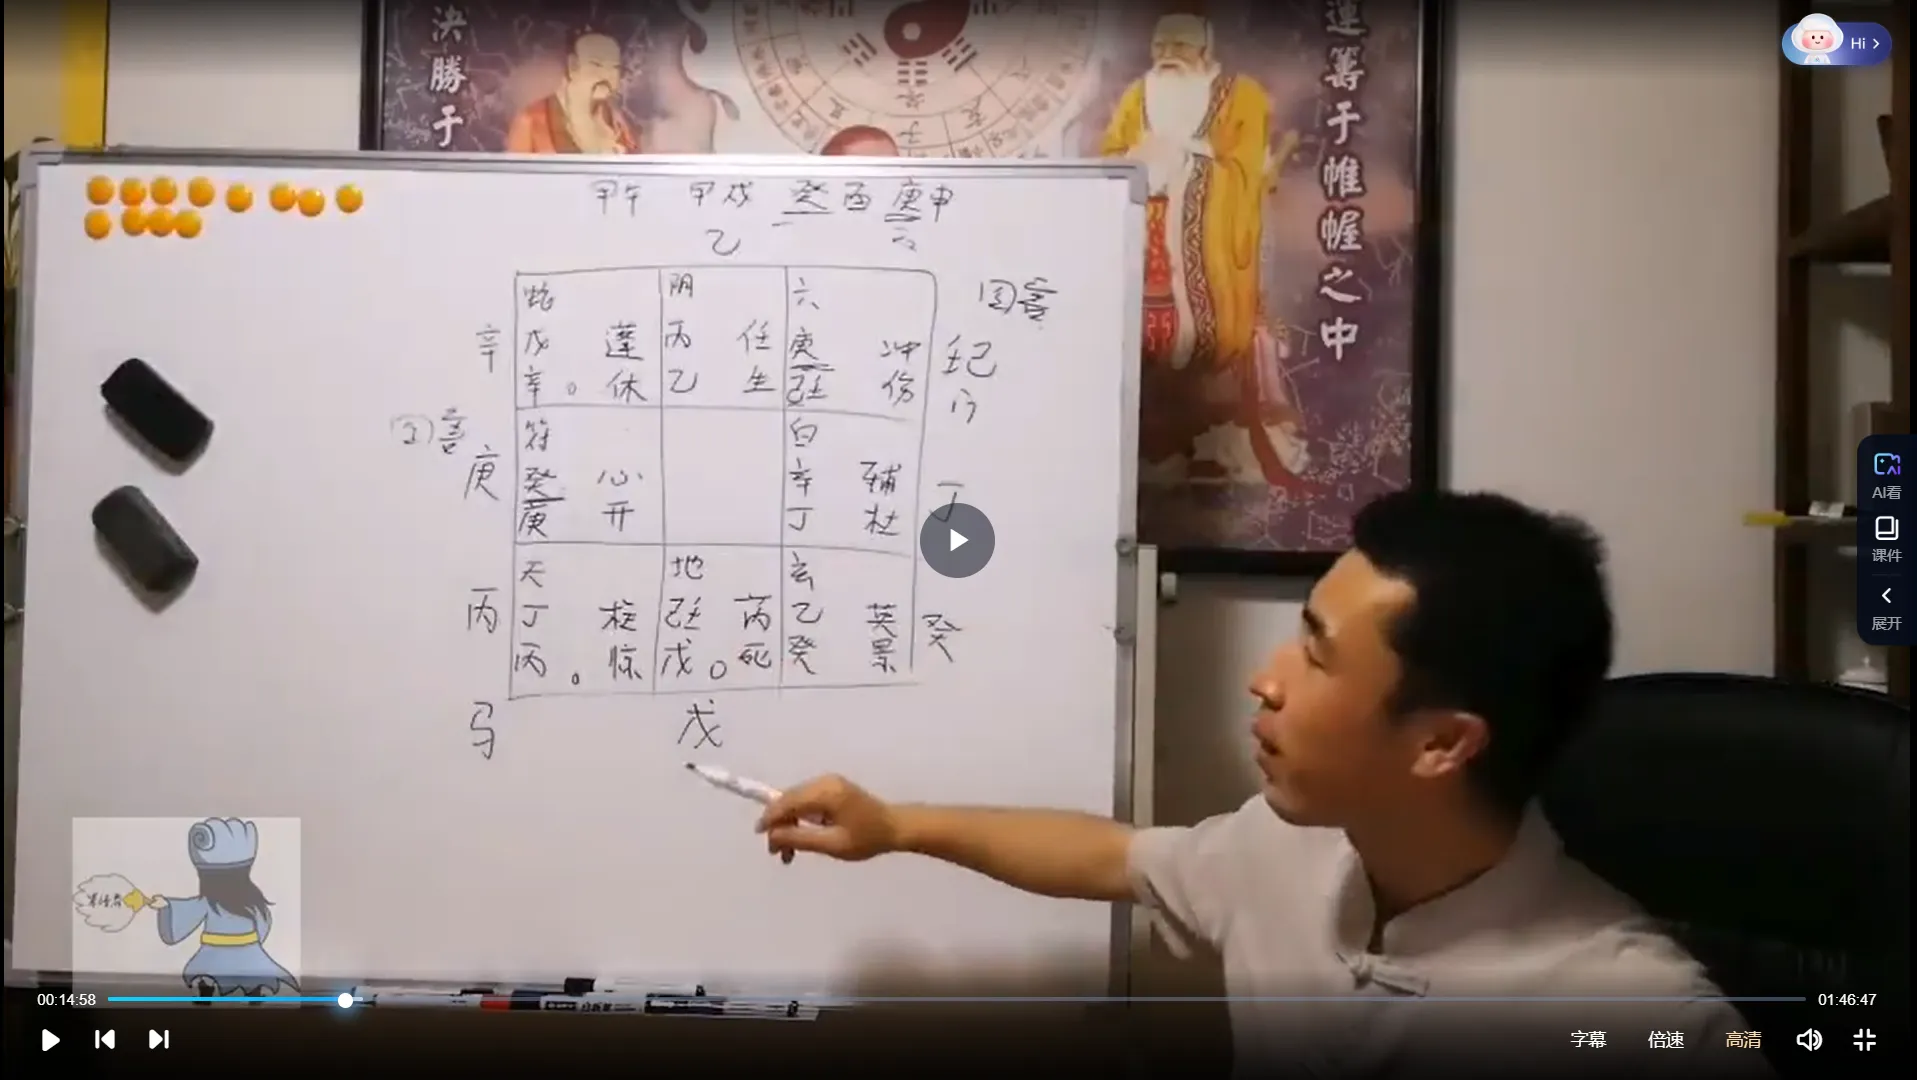 決勝于
運籌于帷幄之中
Hi
甲午 甲戌 癸酉 庚申
乙
蛇 阴 六
辛 戊 蓬 丙 任 庚 冲
辛 休 乙 生 己壬 伤
壬己
符 白
庚 癸 心 辛 辅 丁
庚 开 丁 杜
天 地 玄
丙 丁 柱 己壬 芮 乙 英 癸
丙 惊 戊 死 癸 景
马 戊
AI看
课件
展开
00:14:58
01:46:47
字幕 倍速 高清